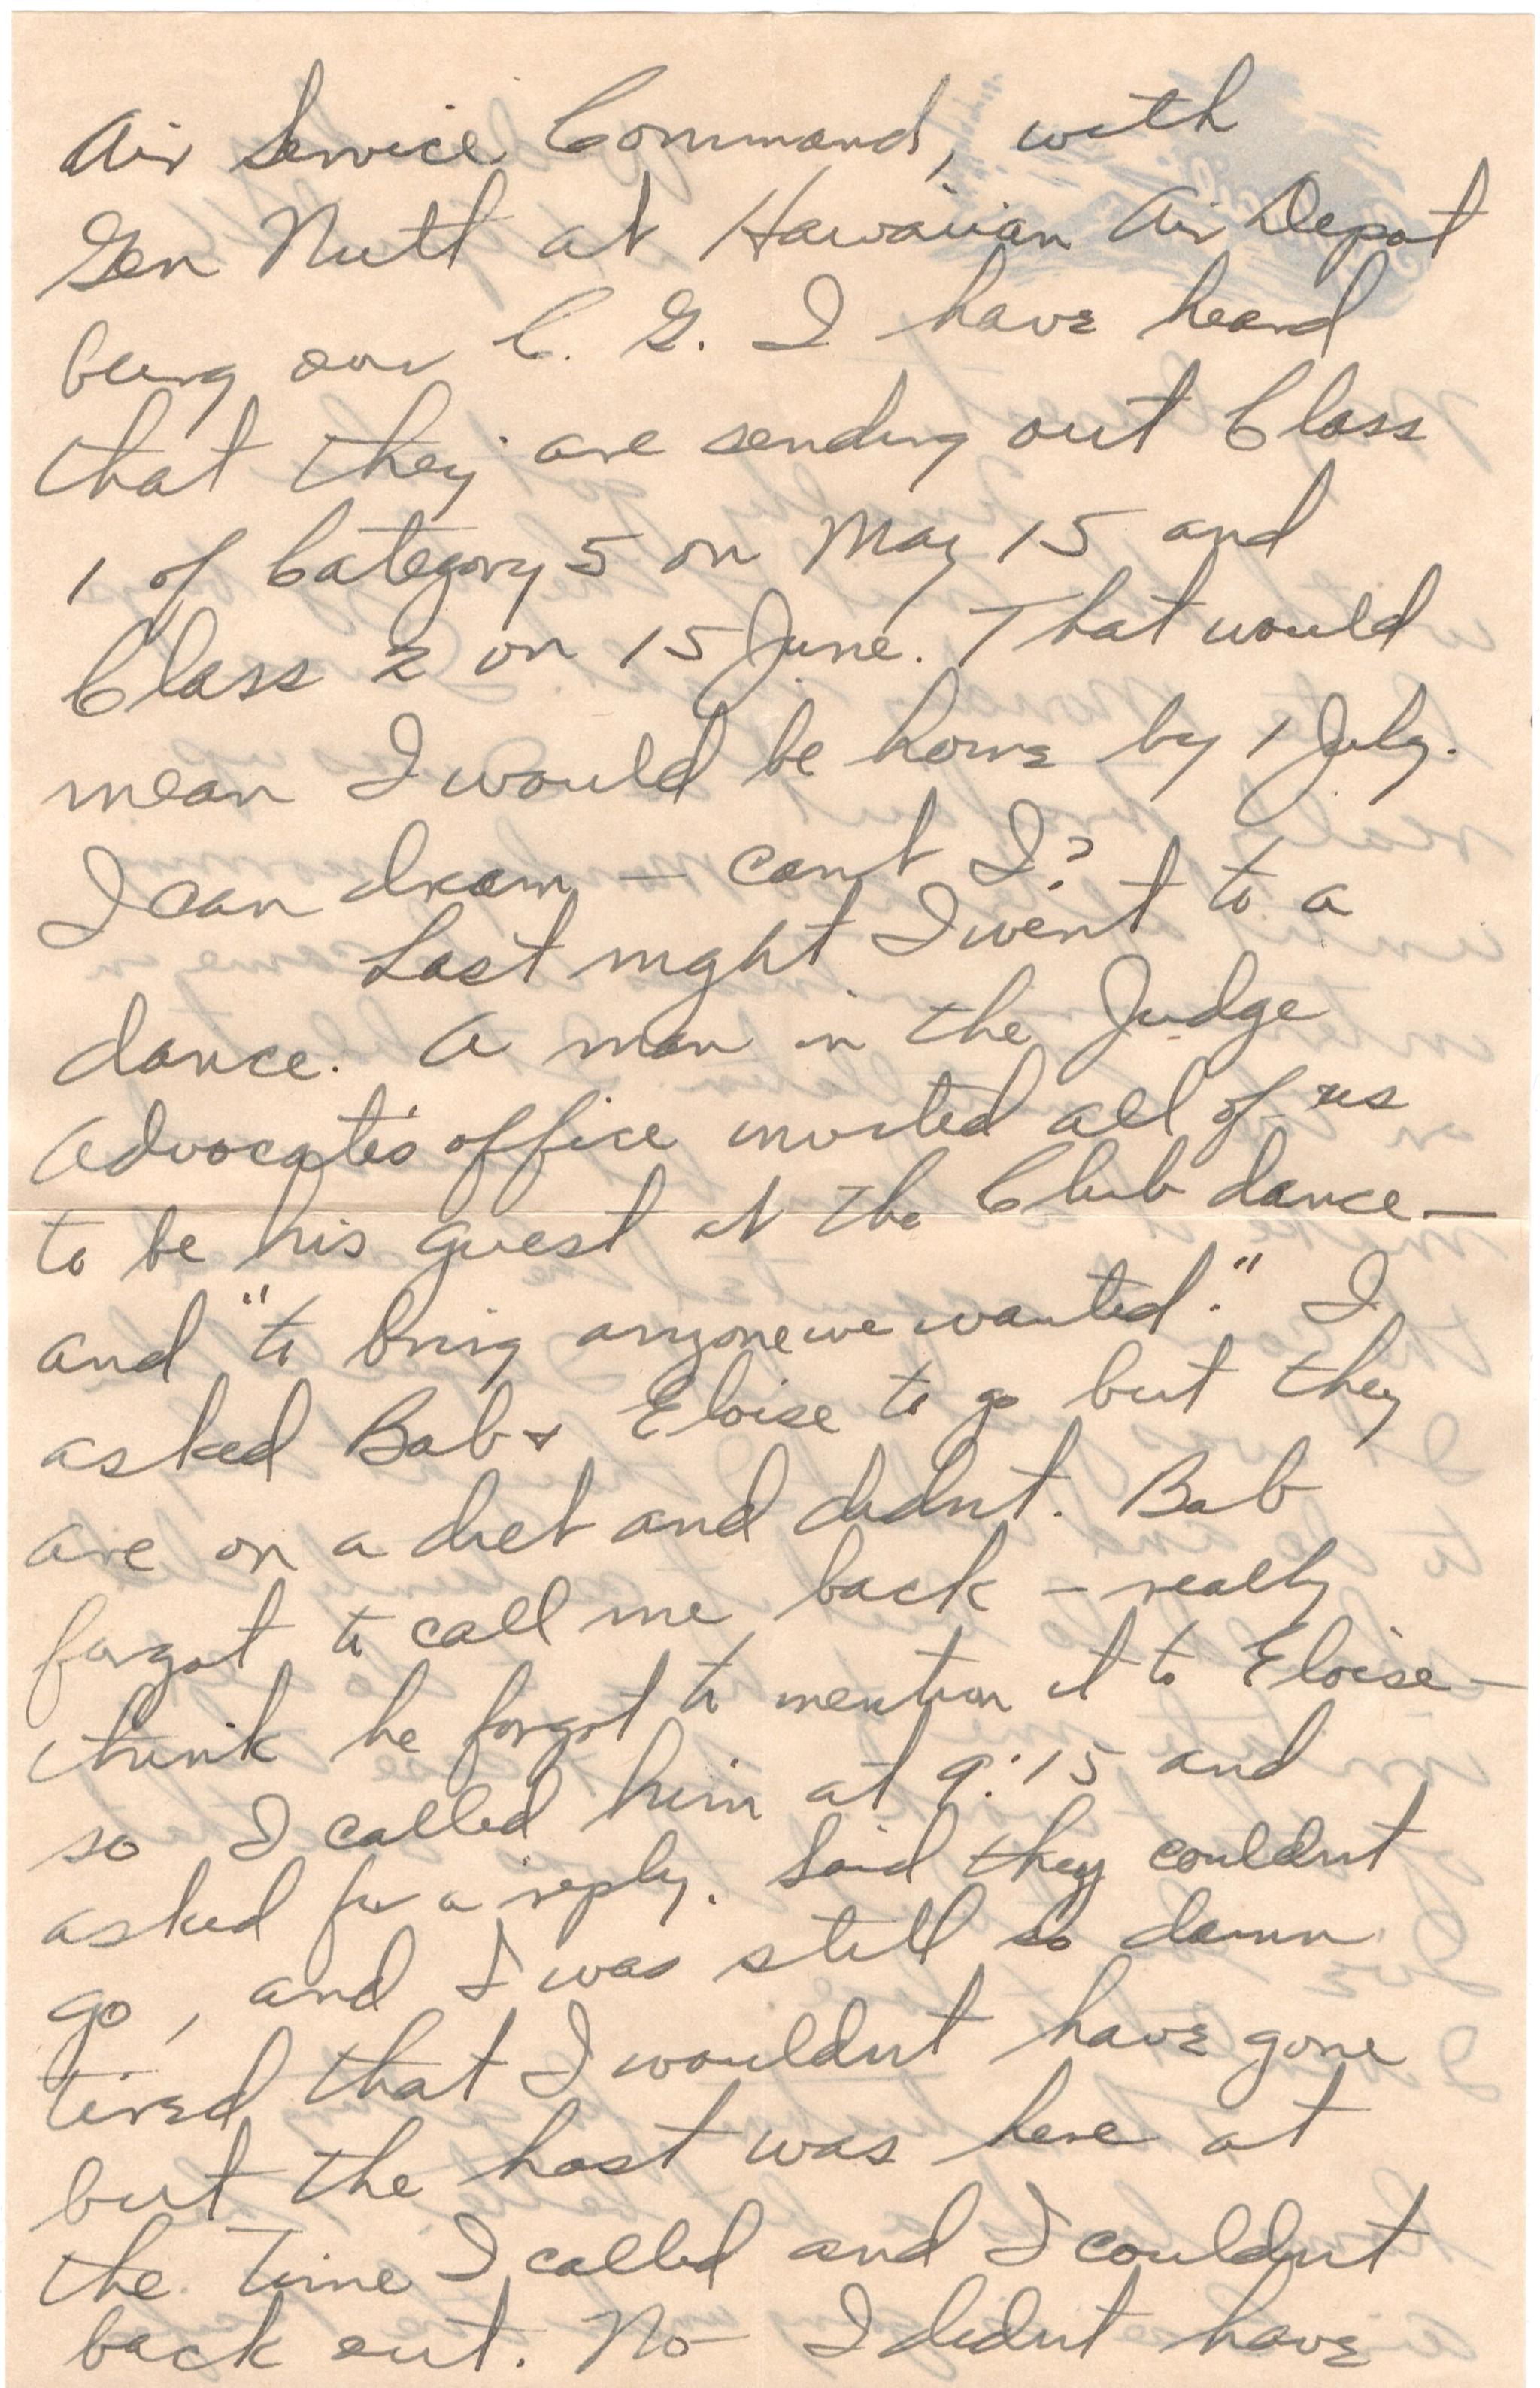 Air Service Command, with
Gen Nutt at Hawaiian Air Depot
being our C. G. I have heard
that they are sending out Class
1 of Category 5 on May 15 and
Class 2 on 15 June. That would
mean I would be home by 1 July.
I can dream - cant I?
Last night I went to a
dance. A man in the Judge
Advocate's office invited all of us
to be his guest at the Club dance -
and "to bring anyone we wanted." I
asked Bob & Eloise to go but they
are on a diet and didnt. Bob
forgot to call me back - really
think he forgot to mention it to Eloise -
so I called him at 9:15 and
asked for a reply. Said they couldnt
go, and I was still so damn
tired that I wouldnt have gone
but the host was here at
the time I called and I couldnt
back out. No - I didnt have